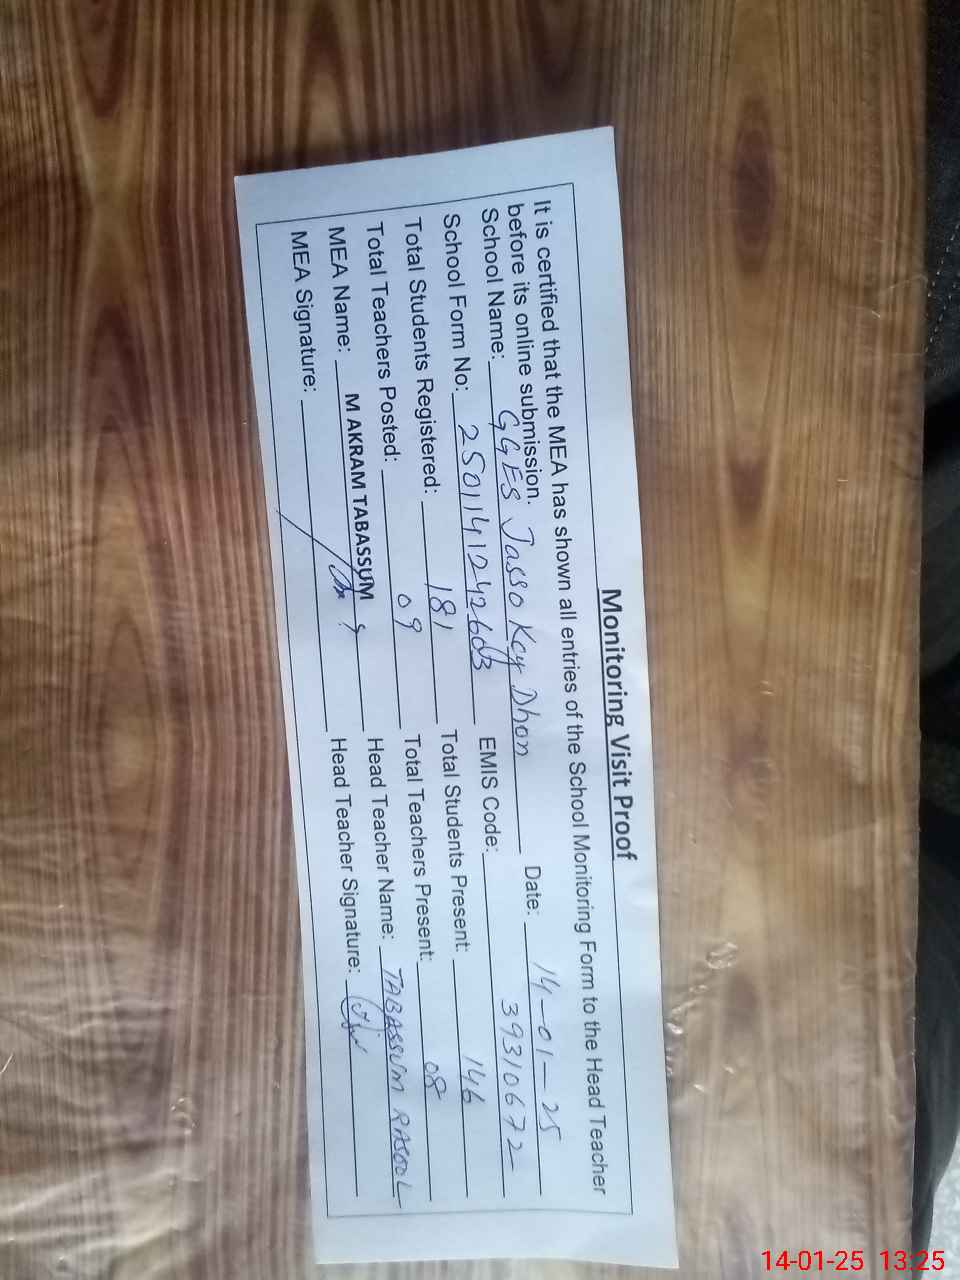 Monitoring Visit Proof
It is certified that the MEA has shown all entries of the School Monitoring Form to the Head Teacher
before its online submission.
School Name: GGES Jasso Key Dhon Date: 14-01-25
School Form No: 2501141242603 EMIS Code: 39310672
Total Students Registered: 181 Total Students Present: 146
Total Teachers Posted: 09 Total Teachers Present: 08
MEA Name: M AKRAM TABASSUM Head Teacher Name: TABASSUM RASOOL
MEA Signature: Head Teacher Signature:
14-01-25 13:25